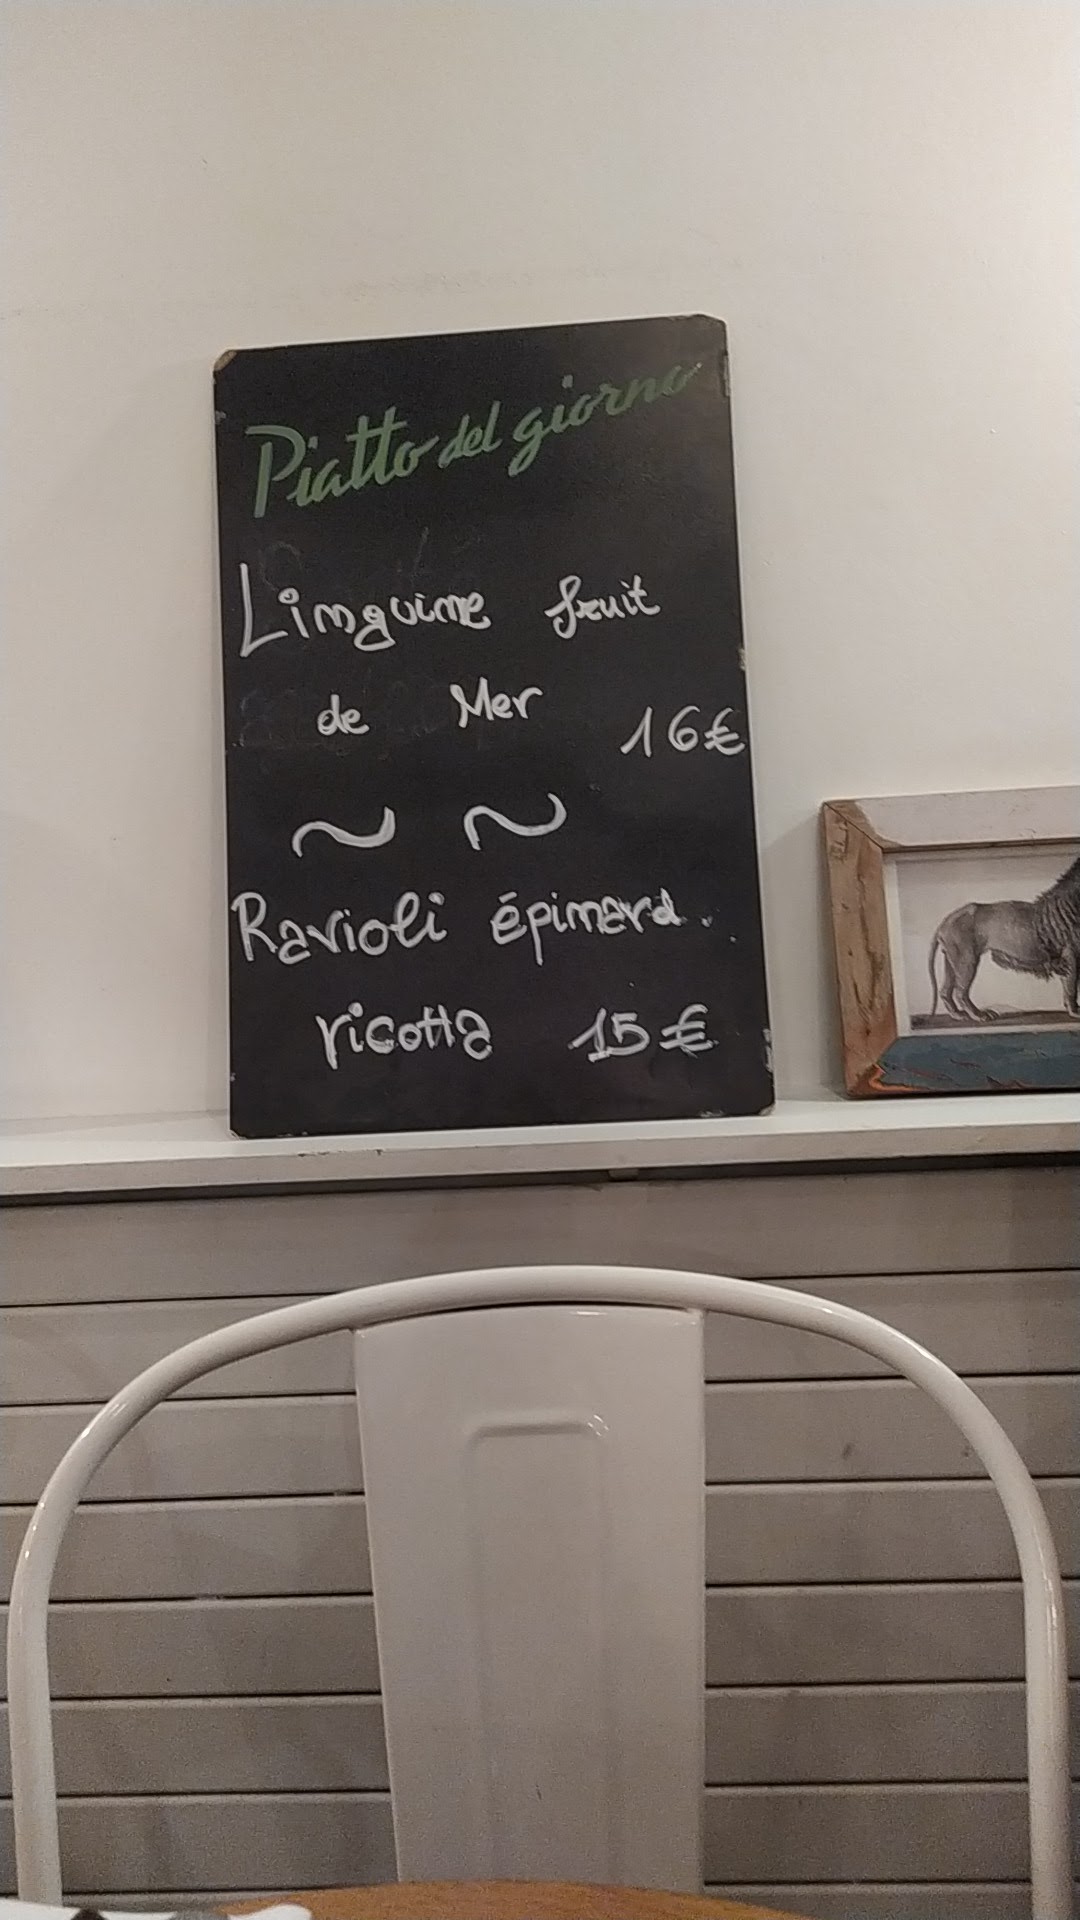 Piatto del giorno
Linguine fruit
de Mer 16€
~ ~
Ravioli épinard.
ricotta 15€